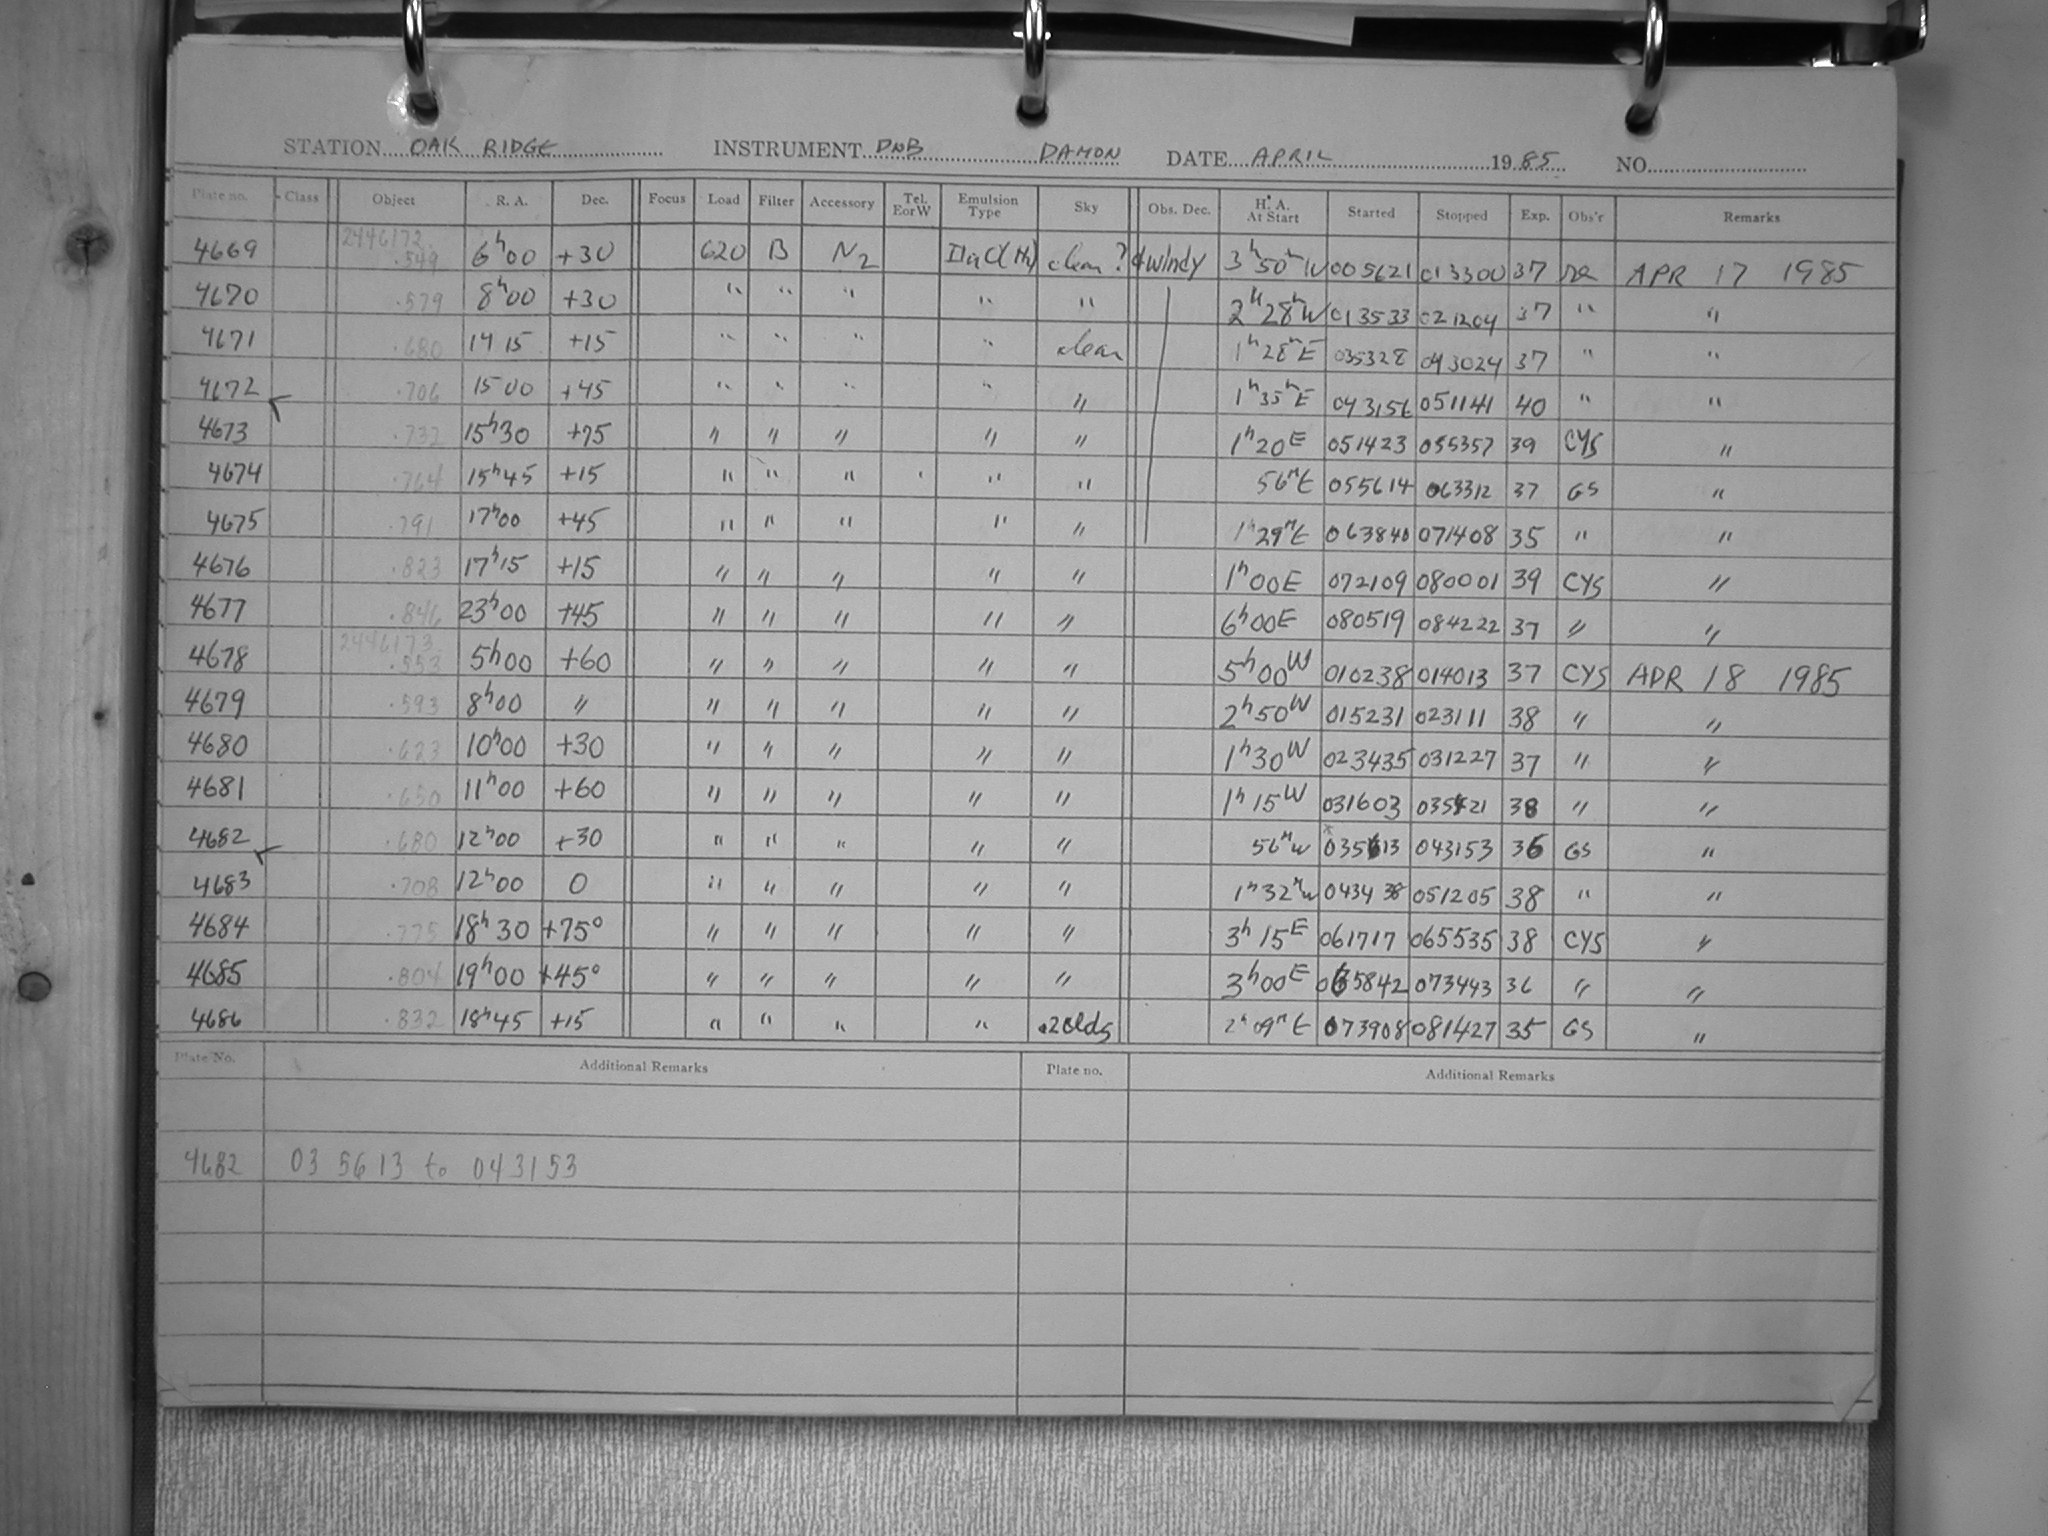 STATION OAK RIDGE INSTRUMENT DNB DAMON DATE APRIL 1985 NO.
Plate no. Class Object R. A. Dec. Focus Load Filter Accessory Tel. EorW Emulsion Type Sky Obs. Dec. H. A. At Start Started Stopped Exp. Obs'r Remarks
4669 2446172 .549 6h00 +30 620 B N2 IIaO(H2) clear? & windy 3h50mW 005621 013300 37 APR 17 1985
4670 .579 8h00 +30 " " " " " 2h28mW 013533 021204 37 " "
4671 .680 14 15 +15 " " " " clear 1h28mE 035328 043024 37 " "
4672 .706 15 00 +45 " " " " " 1h35mE 043156 051141 40 " "
4673 .732 15h30 +75 " " " " " 1h20E 051423 055357 39 CYS "
4674 .764 15h45 +15 " " " " " 56mE 055614 063312 37 GS "
4675 .791 17h00 +45 " " " " " 1h29mE 063840 071408 35 " "
4676 .823 17h15 +15 " " " " " 1h00E 072109 080001 39 CYS "
4677 .846 23h00 +45 " " " " " 6h00E 080519 084222 37 " "
4678 2446173 .552 5h00 +60 " " " " " 5h00W 010238 014013 37 CYS APR 18 1985
4679 .593 8h00 " " " " " " 2h50W 015231 023111 38 " "
4680 .623 10h00 +30 " " " " " 1h30W 023435 031227 37 " "
4681 .650 11h00 +60 " " " " " 1h15W 031603 035421 38 " "
4682 .680 12h00 +30 " " " " " 56mW 035613 043153 36 GS "
4683 .708 12h00 0 " " " " " 1h32mW 043438 051205 38 " "
4684 .775 18h30 +75° " " " " " 3h15E 061717 065535 38 CYS "
4685 .804 19h00 +45° " " " " " 3h00E 065842 073443 36 " "
4686 .832 18h45 +15 " " " " .2 clds 2h09mE 073908 081427 35 GS "
Plate No. Additional Remarks Plate no. Additional Remarks
4682 03 56 13 to 043153